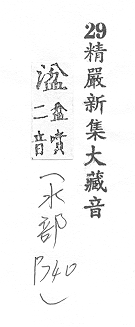 29精嚴新集大藏音
湓盆噴二音
(水部P40)